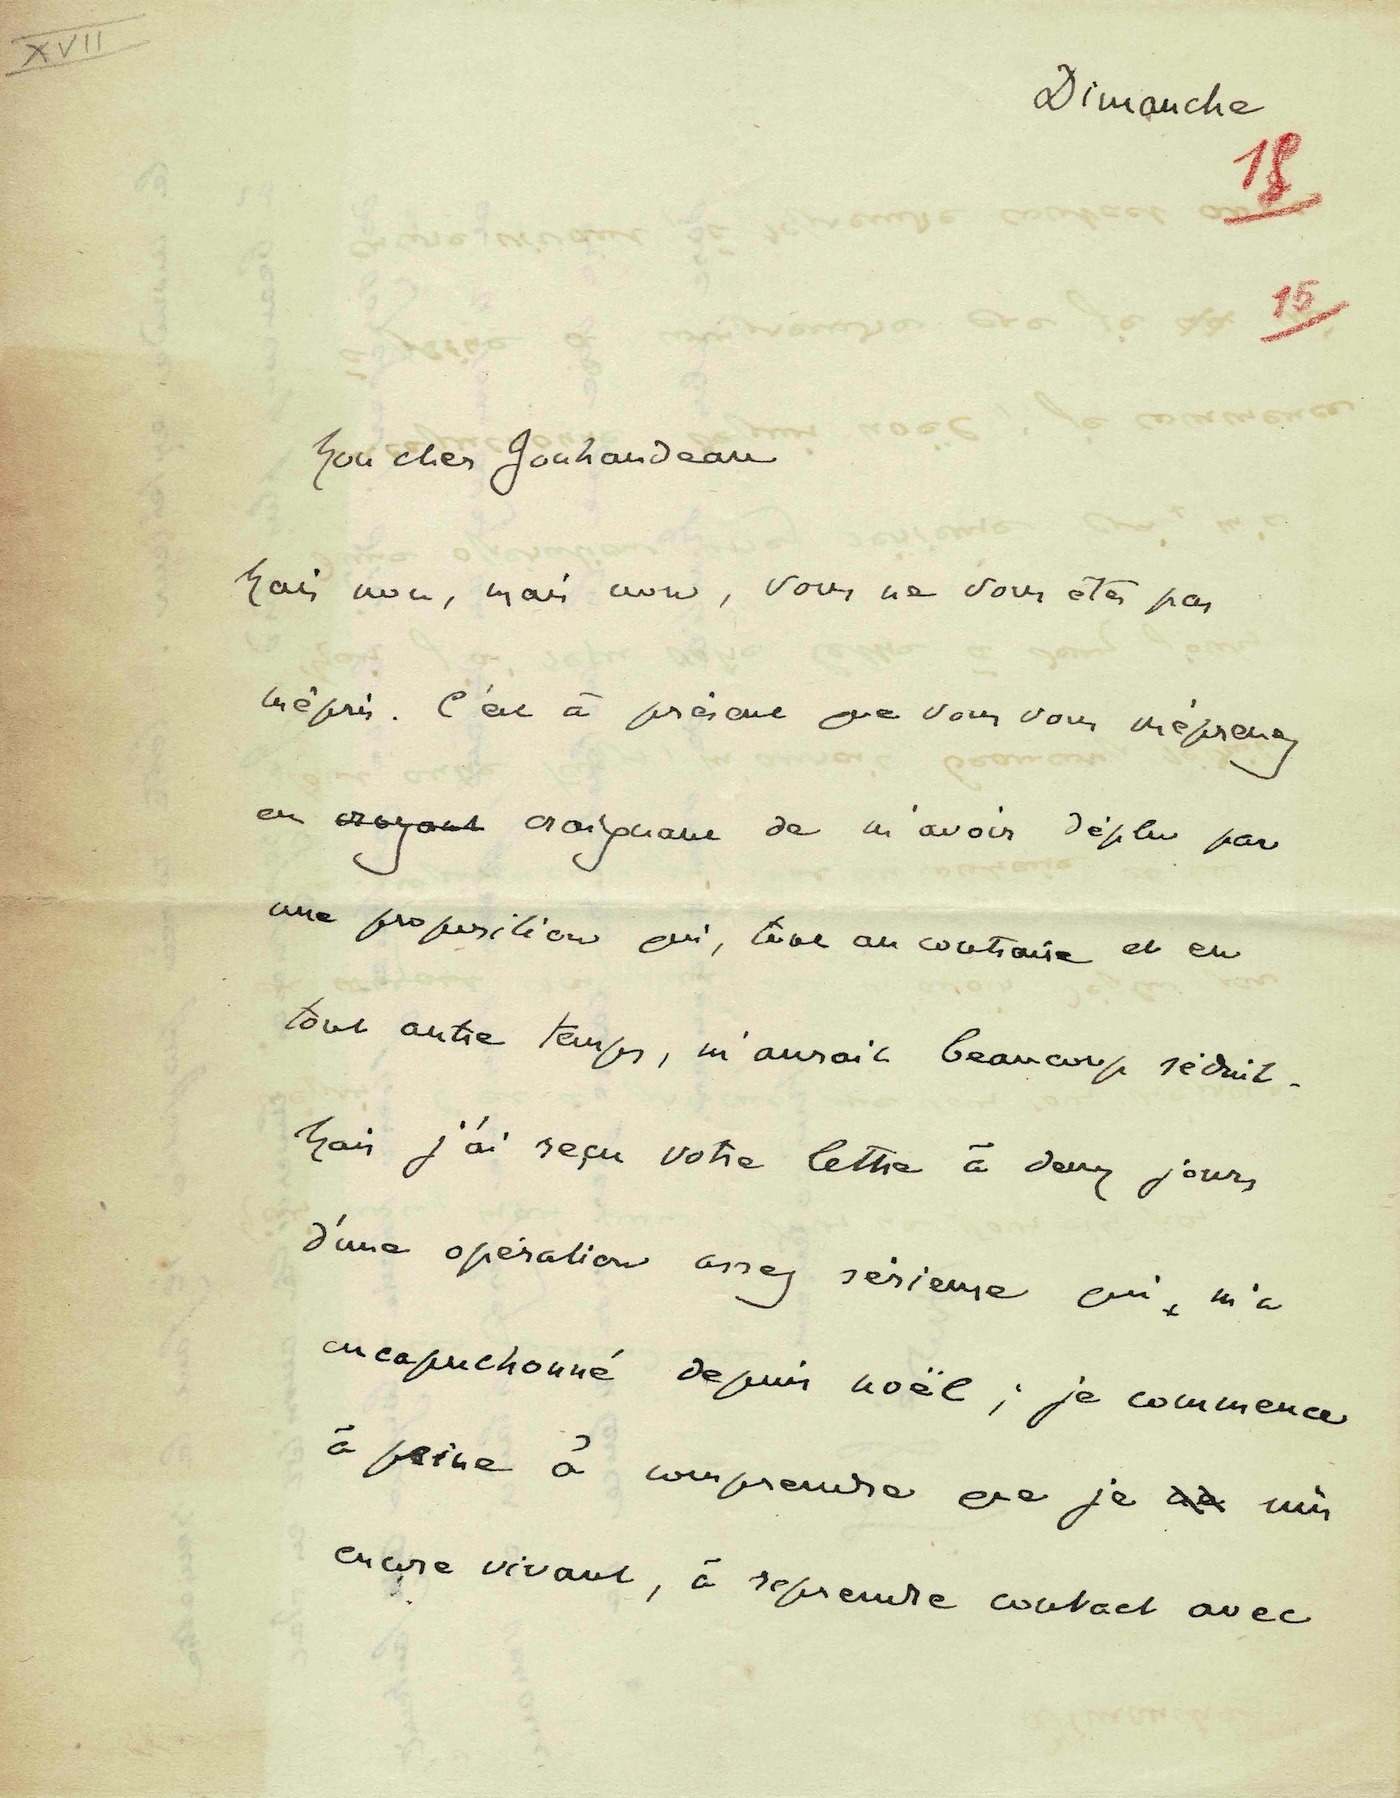 XVII
Dimanche
18
15
Mon cher Jouhandeau
Mais non, mais non, vous ne vous êtes pas
mépris. C'est à présent que vous vous méprenez
en croyant craignant de m'avoir déplu par
une proposition qui, tout au contraire et en
tout autre temps, m'aurait beaucoup séduit.
Mais j'ai reçu votre lettre à deux jours
d'une opération assez sérieuse qui m'a
encapuchonné depuis noël ; je commence
à peine à comprendre que je suis
encore vivant, à reprendre contact avec